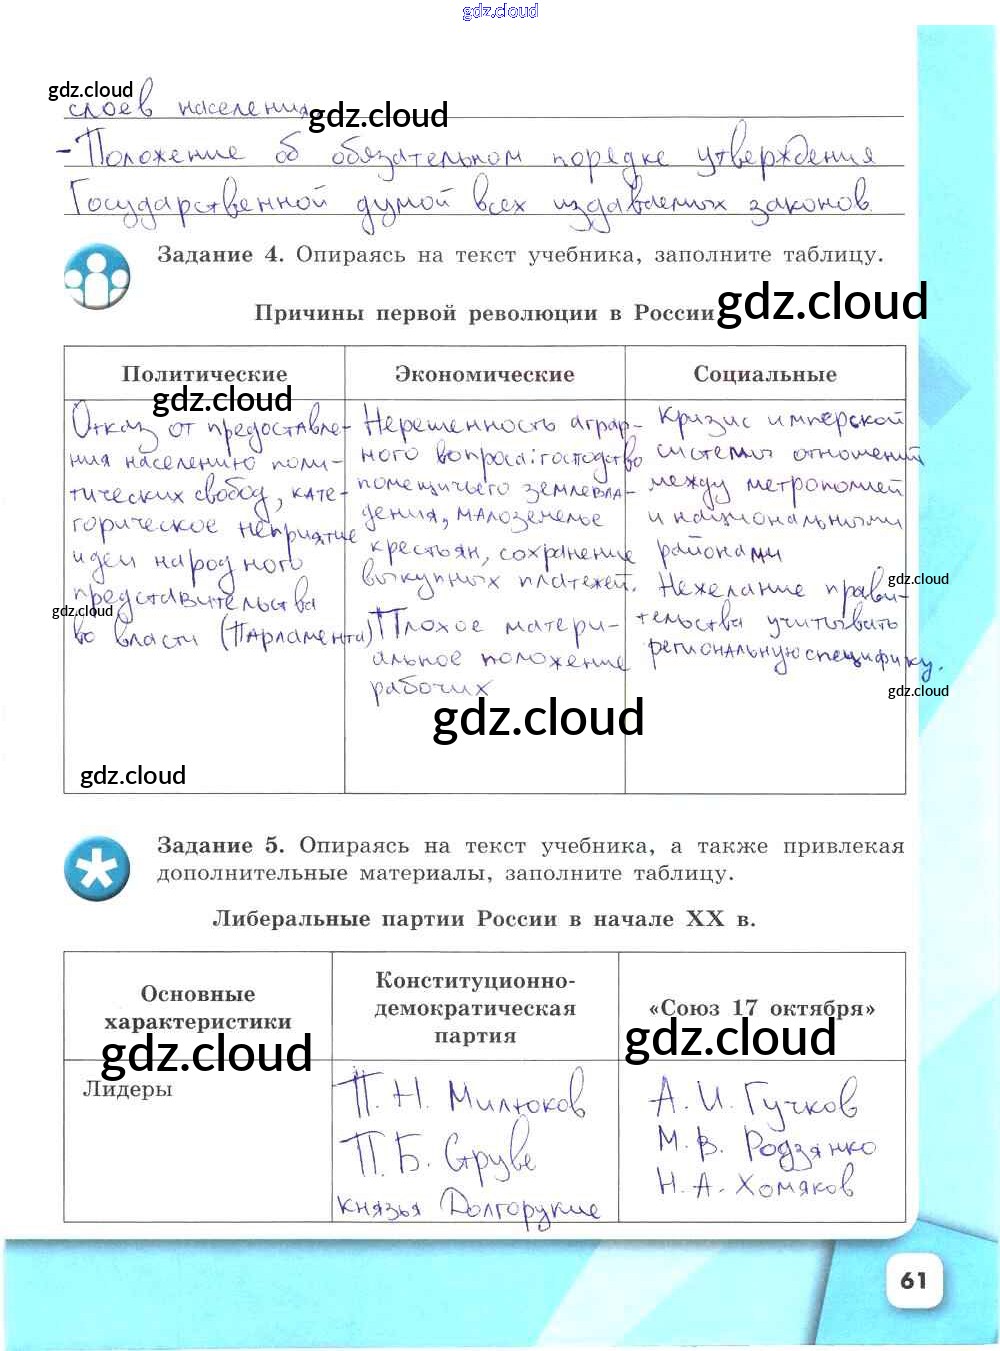 gdz.cloud
gdz.cloud
слоев населения
gdz.cloud
- Положение об обязательном порядке утверждения
Государственной думой всех издаваемых законов.
Задание 4. Опираясь на текст учебника, заполните таблицу.
Причины первой революции в России
gdz.cloud
Политические
gdz.cloud
Отказ от предоставле-
ния населению поли-
тических свобод, кате-
горическое неприятие
идеи народного
представительства
gdz.cloud
во власти (Парламента)
gdz.cloud
Экономические
Нерешенность аграр-
ного вопроса: господство
помещичьего землевла-
дения, малоземелье
крестьян, сохранение
выкупных платежей.
Плохое матери-
альное положение
рабочих
gdz.cloud
Социальные
Кризис имперской
системы отношений
между метрополией
и национальными
районами
gdz.cloud
Нежелание прави-
тельства учитывать
региональную специфику.
gdz.cloud
Задание 5. Опираясь на текст учебника, а также привлекая
дополнительные материалы, заполните таблицу.
Либеральные партии России в начале XX в.
Основные
характеристики
gdz.cloud
Конституционно-
демократическая
партия
«Союз 17 октября»
gdz.cloud
Лидеры
П. Н. Милюков
П. Б. Струве
князья Долгорукие
А. И. Гучков
М. В. Родзянко
Н. А. Хомяков
61